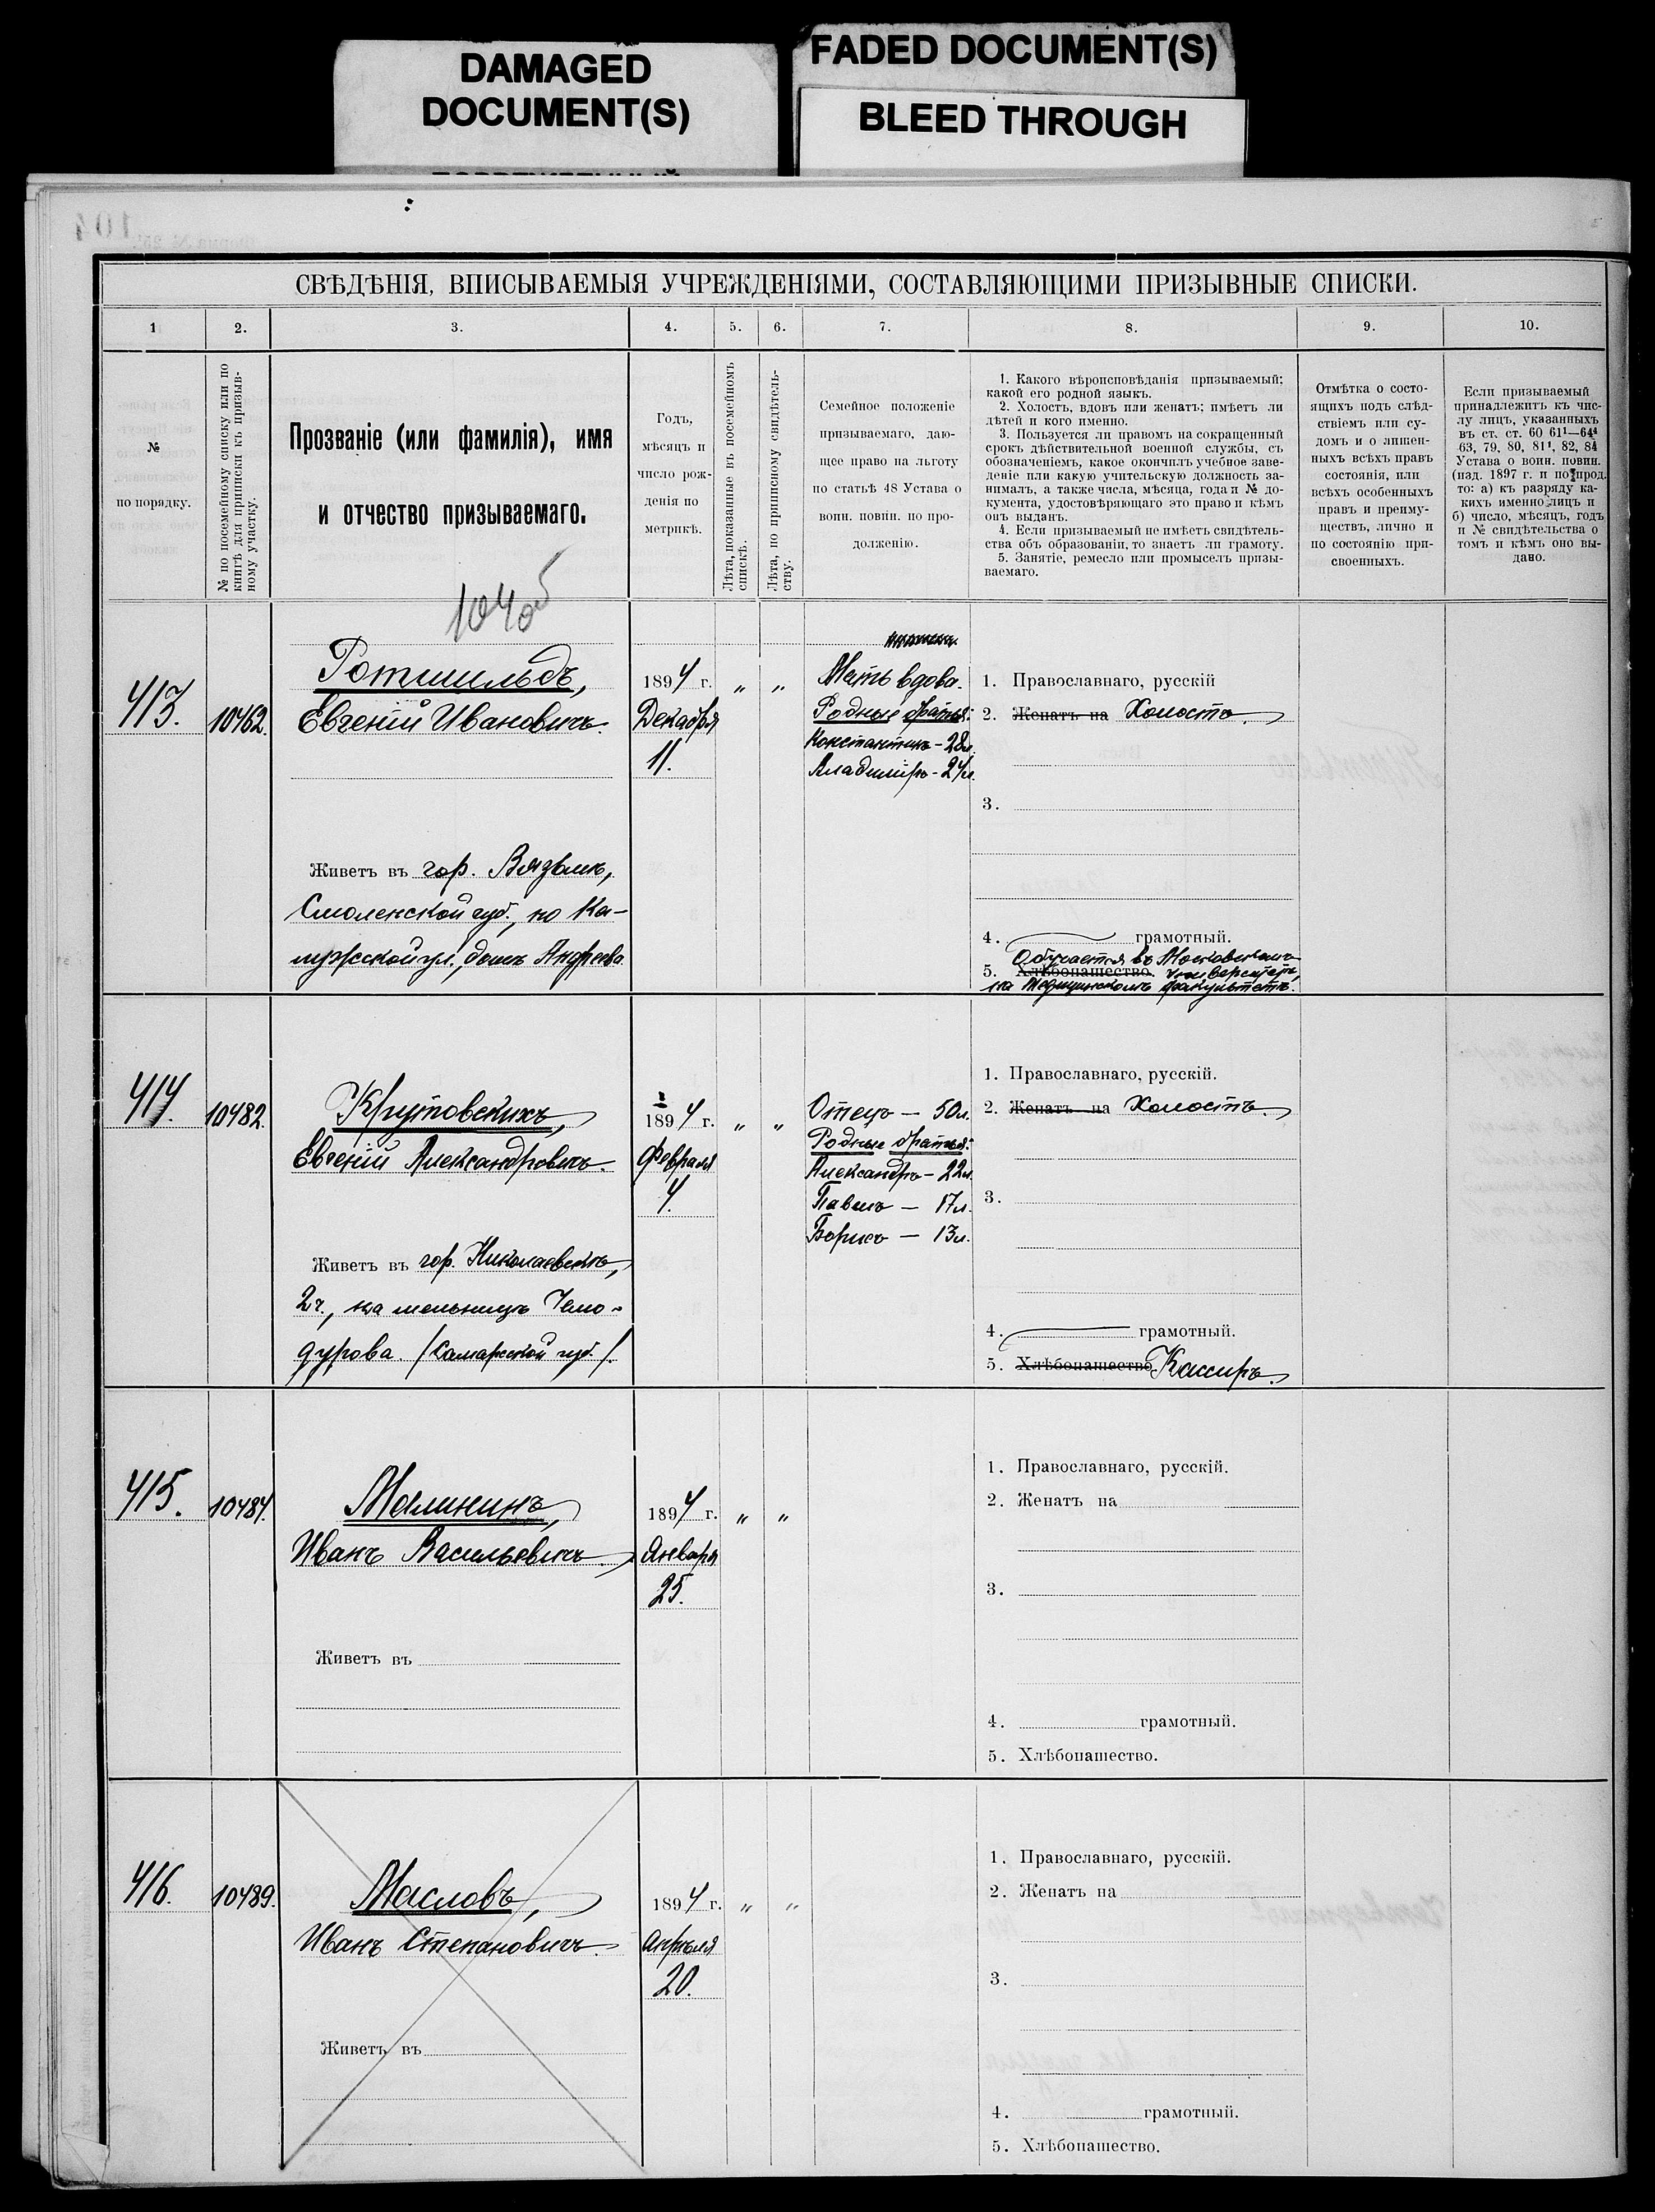 DAMAGED
DOCUMENT(S)
FADED DOCUMENT(S)
BLEED THROUGH
СВѢДѢНІЯ, ВПИСЫВАЕМЫЯ УЧРЕЖДЕНІЯМИ, СОСТАВЛЯЮЩИМИ ПРИЗЫВНЫЕ СПИСКИ.
1 2. 3. 4. 5. 6. 7. 8. 9. 10.
№
по порядку.
№ по посемейному списку или по
книгѣ для приписки къ призыв-
ному участку.
Прозваніе (или фамилія), имя
и отчество призываемаго.
Годъ,
мѣсяцъ и
число рож-
денія по
метрикѣ.
Лѣта, показанные въ посемейномъ
спискѣ.
Лѣта, по приписному свидѣтель-
ству.
Семейное положеніе
призываемаго, даю-
щее право на льготу
по статьѣ 48 Устава о
воин. повин. по про-
долженію.
1. Какого вѣроисповѣданія призываемый;
какой его родной языкъ.
2. Холостъ, вдовъ или женатъ; имѣетъ ли
дѣтей и кого именно.
3. Пользуется ли правомъ на сокращенный
срокъ дѣйствительной военной службы, съ
обозначеніемъ, какое окончилъ учебное заве-
деніе или какую учительскую должность за-
нималъ, а также числа, мѣсяца, года и № до-
кумента, удостовѣряющаго это право и кѣмъ
онъ выданъ.
4. Если призываемый не имѣетъ свидѣтель-
ства объ образованіи, то знаетъ ли грамоту.
5. Занятіе, ремесло или промыселъ призы-
ваемаго.
Отмѣтка о состо-
ящихъ подъ слѣд-
ствіемъ или су-
домъ и о лишен-
ныхъ всѣхъ правъ
состоянія, или
всѣхъ особенныхъ
правъ и преиму-
ществъ, лично и
по состоянію при-
своенныхъ.
Если призываемый
принадлежитъ къ чис-
лу лицъ, указанныхъ
въ ст. ст. 60 61¹—64⁴
63, 79, 80, 81¹, 82, 84
Устава о воин. повин.
(изд. 1897 г. и по прод.
то: а) къ разряду ка-
кихъ именно лицъ и
б) число, мѣсяцъ, годъ
и № свидѣтельства о
томъ и кѣмъ оно вы-
дано.
104об
413.
10462.
Ротшильдъ,
Евгеній Ивановичъ.
Живетъ въ гор. Вязьмѣ,
Смоленской губ., по Ка-
лужской ул., домъ Андреева
1894 г.
Декабря
11.
" "
Мать вдова.
Родные братья:
Константинъ - 28л.
Владиміръ - 24л.
1. Православнаго, русскій
2. Женатъ на Холостъ.
3.
4. грамотный.
Обучается въ Московскомъ
5. Хлѣбопашество. университетѣ,
на Медицинскомъ факультетѣ.
414.
10482.
Крутовскихъ,
Евгеній Александровичъ.
Живетъ въ гор. Николаевскѣ,
2ч., на мельницѣ Чемо-
дурова. (Самарской губ.).
1894 г.
Февраля
4.
" "
Отецъ — 50л.
Родные братья:
Александръ - 22л.
Павелъ — 17л.
Борисъ — 13л.
1. Православнаго, русскій.
2. Женатъ на Холостъ.
3.
4. грамотный.
5. Хлѣбопашество Кассиръ.
415.
10484.
Малининъ,
Иванъ Васильевичъ
Живетъ въ
1894 г.
Января
25.
" "
1. Православнаго, русскій.
2. Женатъ на
3.
4. грамотный.
5. Хлѣбопашество.
416.
10489.
Масловъ,
Иванъ Степановичъ.
Живетъ въ
1894 г.
Апрѣля
20.
" "
1. Православнаго, русскій.
2. Женатъ на
3.
4. грамотный.
5. Хлѣбопашество.